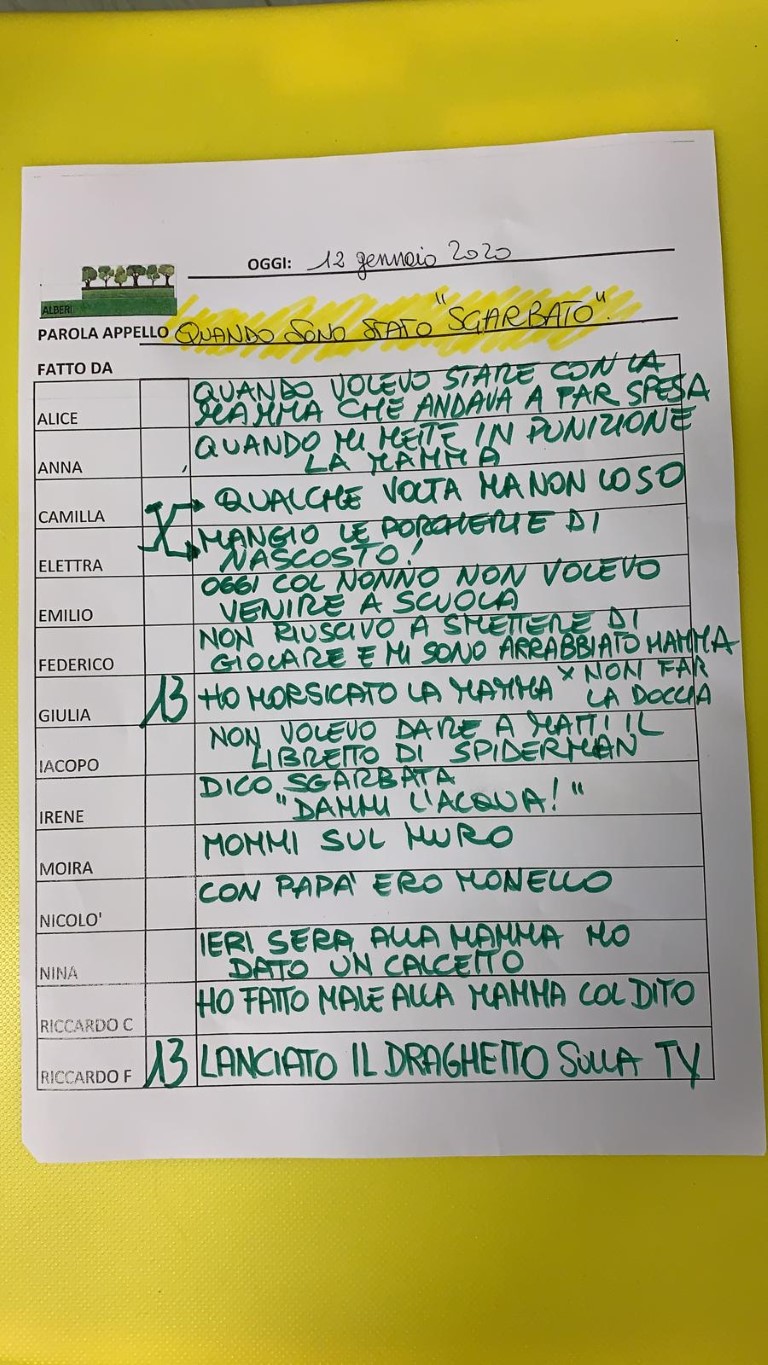 OGGI: 12 gennaio 2020
ALBERI
PAROLA APPELLO QUANDO SONO STATO "SGARBATO".
FATTO DA
ALICE QUANDO VOLEVO STARE CON LA
MAMMA CHE ANDAVA A FAR SPESA
ANNA QUANDO MI METTE IN PUNIZIONE
LA MAMMA
CAMILLA QUALCHE VOLTA MA NON LO SO
ELETTRA MANGIO LE PORCHERIE DI
NASCOSTO!
EMILIO OGGI COL NONNO NON VOLEVO
VENIRE A SCUOLA
FEDERICO NON RIUSCIVO A SMETTERE DI
GIOCARE E MI SONO ARRABBIATO MAMMA
GIULIA 13 HO MORSICATO LA MAMMA X NON FAR
LA DOCCIA
IACOPO NON VOLEVO DARE A MATTI IL
LIBRETTO DI SPIDERMAN
IRENE DICO SGARBATA
"DAMMI L'ACQUA!"
MOIRA MOMMI SUL MURO
NICOLO' CON PAPA' ERO MONELLO
NINA IERI SERA ALLA MAMMA HO
DATO UN CALCETTO
RICCARDO C HO FATTO MALE ALLA MAMMA COL DITO
RICCARDO F 13 LANCIATO IL DRAGHETTO SULLA TV